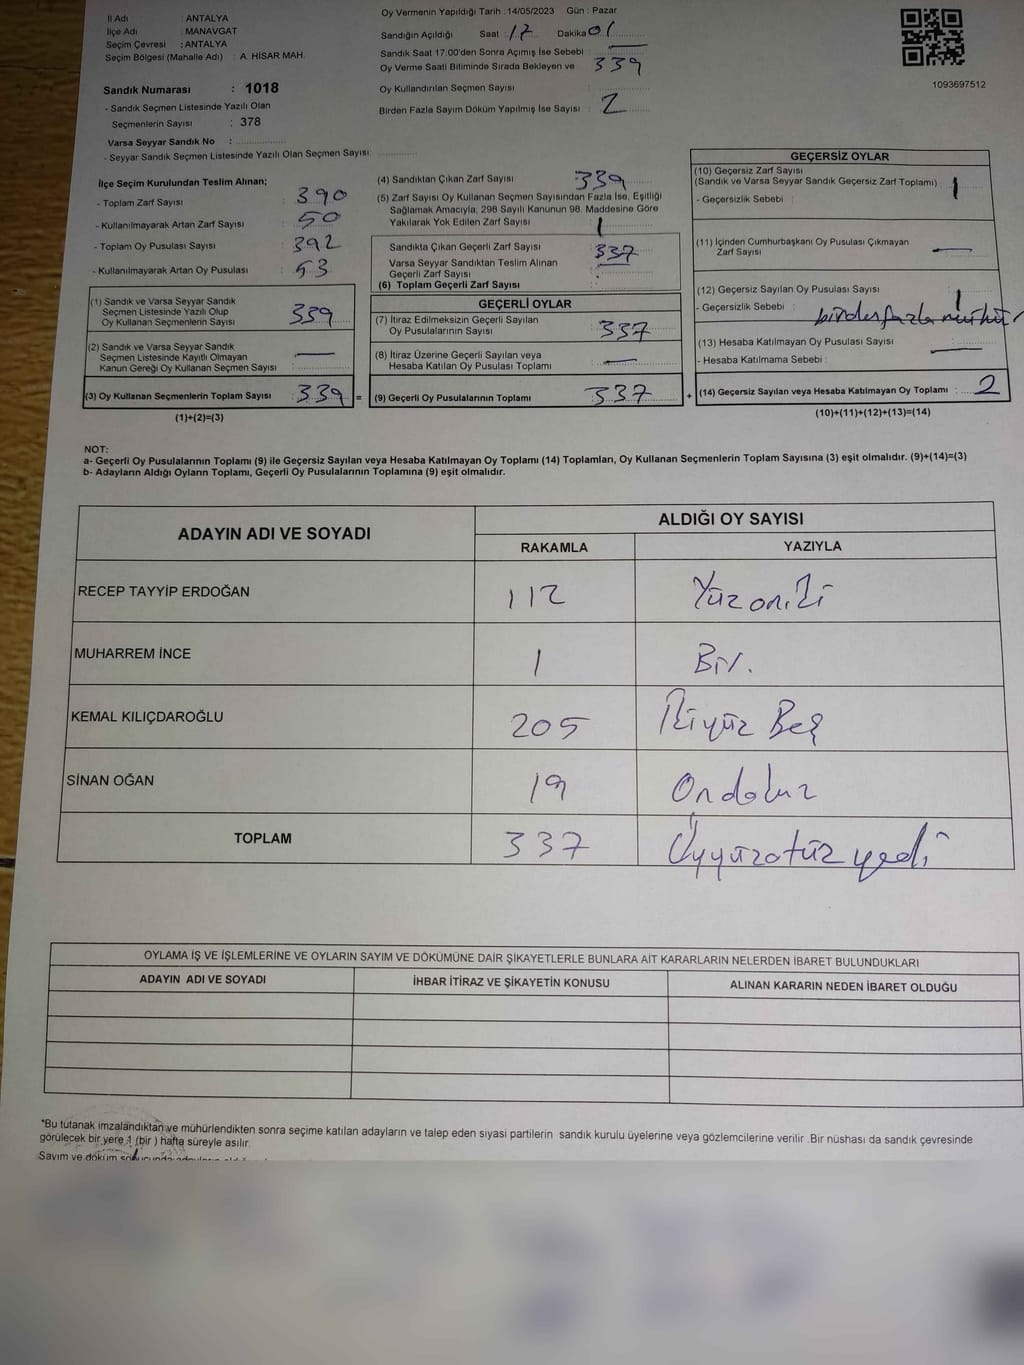 İl Adı : ANTALYA
İlçe Adı : MANAVGAT
Seçim Çevresi : ANTALYA
Seçim Bölgesi (Mahalle Adı) : A. HİSAR MAH.
Sandık Numarası : 1018
- Sandık Seçmen Listesinde Yazılı Olan
Seçmenlerin Sayısı : 378
Varsa Seyyar Sandık No :
- Seyyar Sandık Seçmen Listesinde Yazılı Olan Seçmen Sayısı:
Oy Vermenin Yapıldığı Tarih : 14/05/2023 Gün : Pazar
Sandığın Açıldığı Saat : 17 Dakika 01
Sandık Saat 17:00'den Sonra Açımış İse Sebebi :
Oy Verme Saati Bitiminde Sırada Bekleyen ve 339
Oy Kullandırılan Seçmen Sayısı
Birden Fazla Sayım Döküm Yapılmış İse Sayısı : 2
1093697512
İlçe Seçim Kurulundan Teslim Alınan;
- Toplam Zarf Sayısı : 390
- Kullanılmayarak Artan Zarf Sayısı : 50
- Toplam Oy Pusulası Sayısı : 392
- Kullanılmayarak Artan Oy Pusulası : 53
(1) Sandık ve Varsa Seyyar Sandık
Seçmen Listesinde Yazılı Olup
Oy Kullanan Seçmenlerin Sayısı 339
(2) Sandık ve Varsa Seyyar Sandık
Seçmen Listesinde Kayıtlı Olmayan
Kanun Gereği Oy Kullanan Seçmen Sayısı : —
(3) Oy Kullanan Seçmenlerin Toplam Sayısı 339 =
(1)+(2)=(3)
(4) Sandıktan Çıkan Zarf Sayısı 339
(5) Zarf Sayısı Oy Kullanan Seçmen Sayısından Fazla İse, Eşitliği
Sağlamak Amacıyla; 298 Sayılı Kanunun 98. Maddesine Göre
Yakılarak Yok Edilen Zarf Sayısı 1
Sandıkta Çıkan Geçerli Zarf Sayısı : 337
Varsa Seyyar Sandıktan Teslim Alınan
Geçerli Zarf Sayısı :
(6) Toplam Geçerli Zarf Sayısı
GEÇERLİ OYLAR
(7) İtiraz Edilmeksizin Geçerli Sayılan
Oy Pusulalarının Sayısı : 337
(8) İtiraz Üzerine Geçerli Sayılan veya
Hesaba Katılan Oy Pusulası Toplamı : —
(9) Geçerli Oy Pusulalarının Toplamı 337 +
GEÇERSİZ OYLAR
(10) Geçersiz Zarf Sayısı
(Sandık ve Varsa Seyyar Sandık Geçersiz Zarf Toplamı) : 1
- Geçersizlik Sebebi :
(11) İçinden Cumhurbaşkanı Oy Pusulası Çıkmayan
Zarf Sayısı —
(12) Geçersiz Sayılan Oy Pusulası Sayısı : 1
- Geçersizlik Sebebi : birden fazla mühür
(13) Hesaba Katılmayan Oy Pusulası Sayısı : —
- Hesaba Katılmama Sebebi :
(14) Geçersiz Sayılan veya Hesaba Katılmayan Oy Toplamı : 2
(10)+(11)+(12)+(13)=(14)
NOT:
a- Geçerli Oy Pusulalarının Toplamı (9) ile Geçersiz Sayılan veya Hesaba Katılmayan Oy Toplamı (14) Toplamları, Oy Kullanan Seçmenlerin Toplam Sayısına (3) eşit olmalıdır. (9)+(14)=(3)
b- Adayların Aldığı Oyların Toplamı, Geçerli Oy Pusulalarının Toplamına (9) eşit olmalıdır.
ADAYIN ADI VE SOYADI ALDIĞI OY SAYISI
RAKAMLA YAZIYLA
RECEP TAYYİP ERDOĞAN 112 Yüz oniki
MUHARREM İNCE 1 Bir.
KEMAL KILIÇDAROĞLU 205 İkiyüz Beş
SİNAN OĞAN 19 Ondokuz
TOPLAM 337 Üçyüzotuz yedi
OYLAMA İŞ VE İŞLEMLERİNE VE OYLARIN SAYIM VE DÖKÜMÜNE DAİR ŞİKAYETLERLE BUNLARA AİT KARARLARIN NELERDEN İBARET BULUNDUKLARI
ADAYIN ADI VE SOYADI İHBAR İTİRAZ VE ŞİKAYETİN KONUSU ALINAN KARARIN NEDEN İBARET OLDUĞU
*Bu tutanak imzalandıktan ve mühürlendikten sonra seçime katılan adayların ve talep eden siyasi partilerin sandık kurulu üyelerine veya gözlemcilerine verilir. Bir nüshası da sandık çevresinde
görülecek bir yere 1 (bir ) hafta süreyle asılır.
Sayım ve döküm